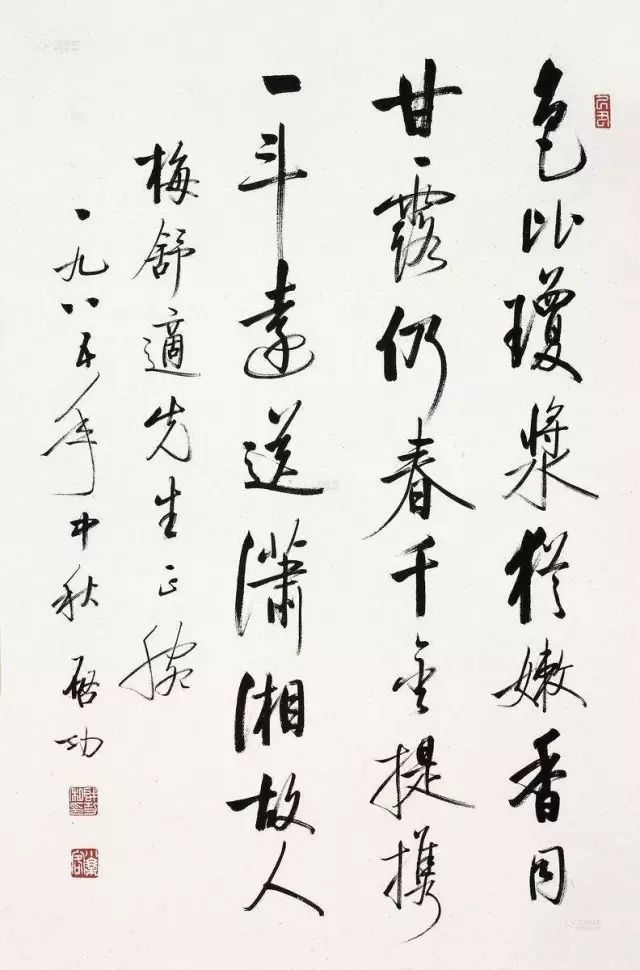 色比瓊漿猶嫩香同
甘露仍春千金提攜
一斗遠送瀟湘故人
梅舒適先生正腕
一九八五年中秋 啓功